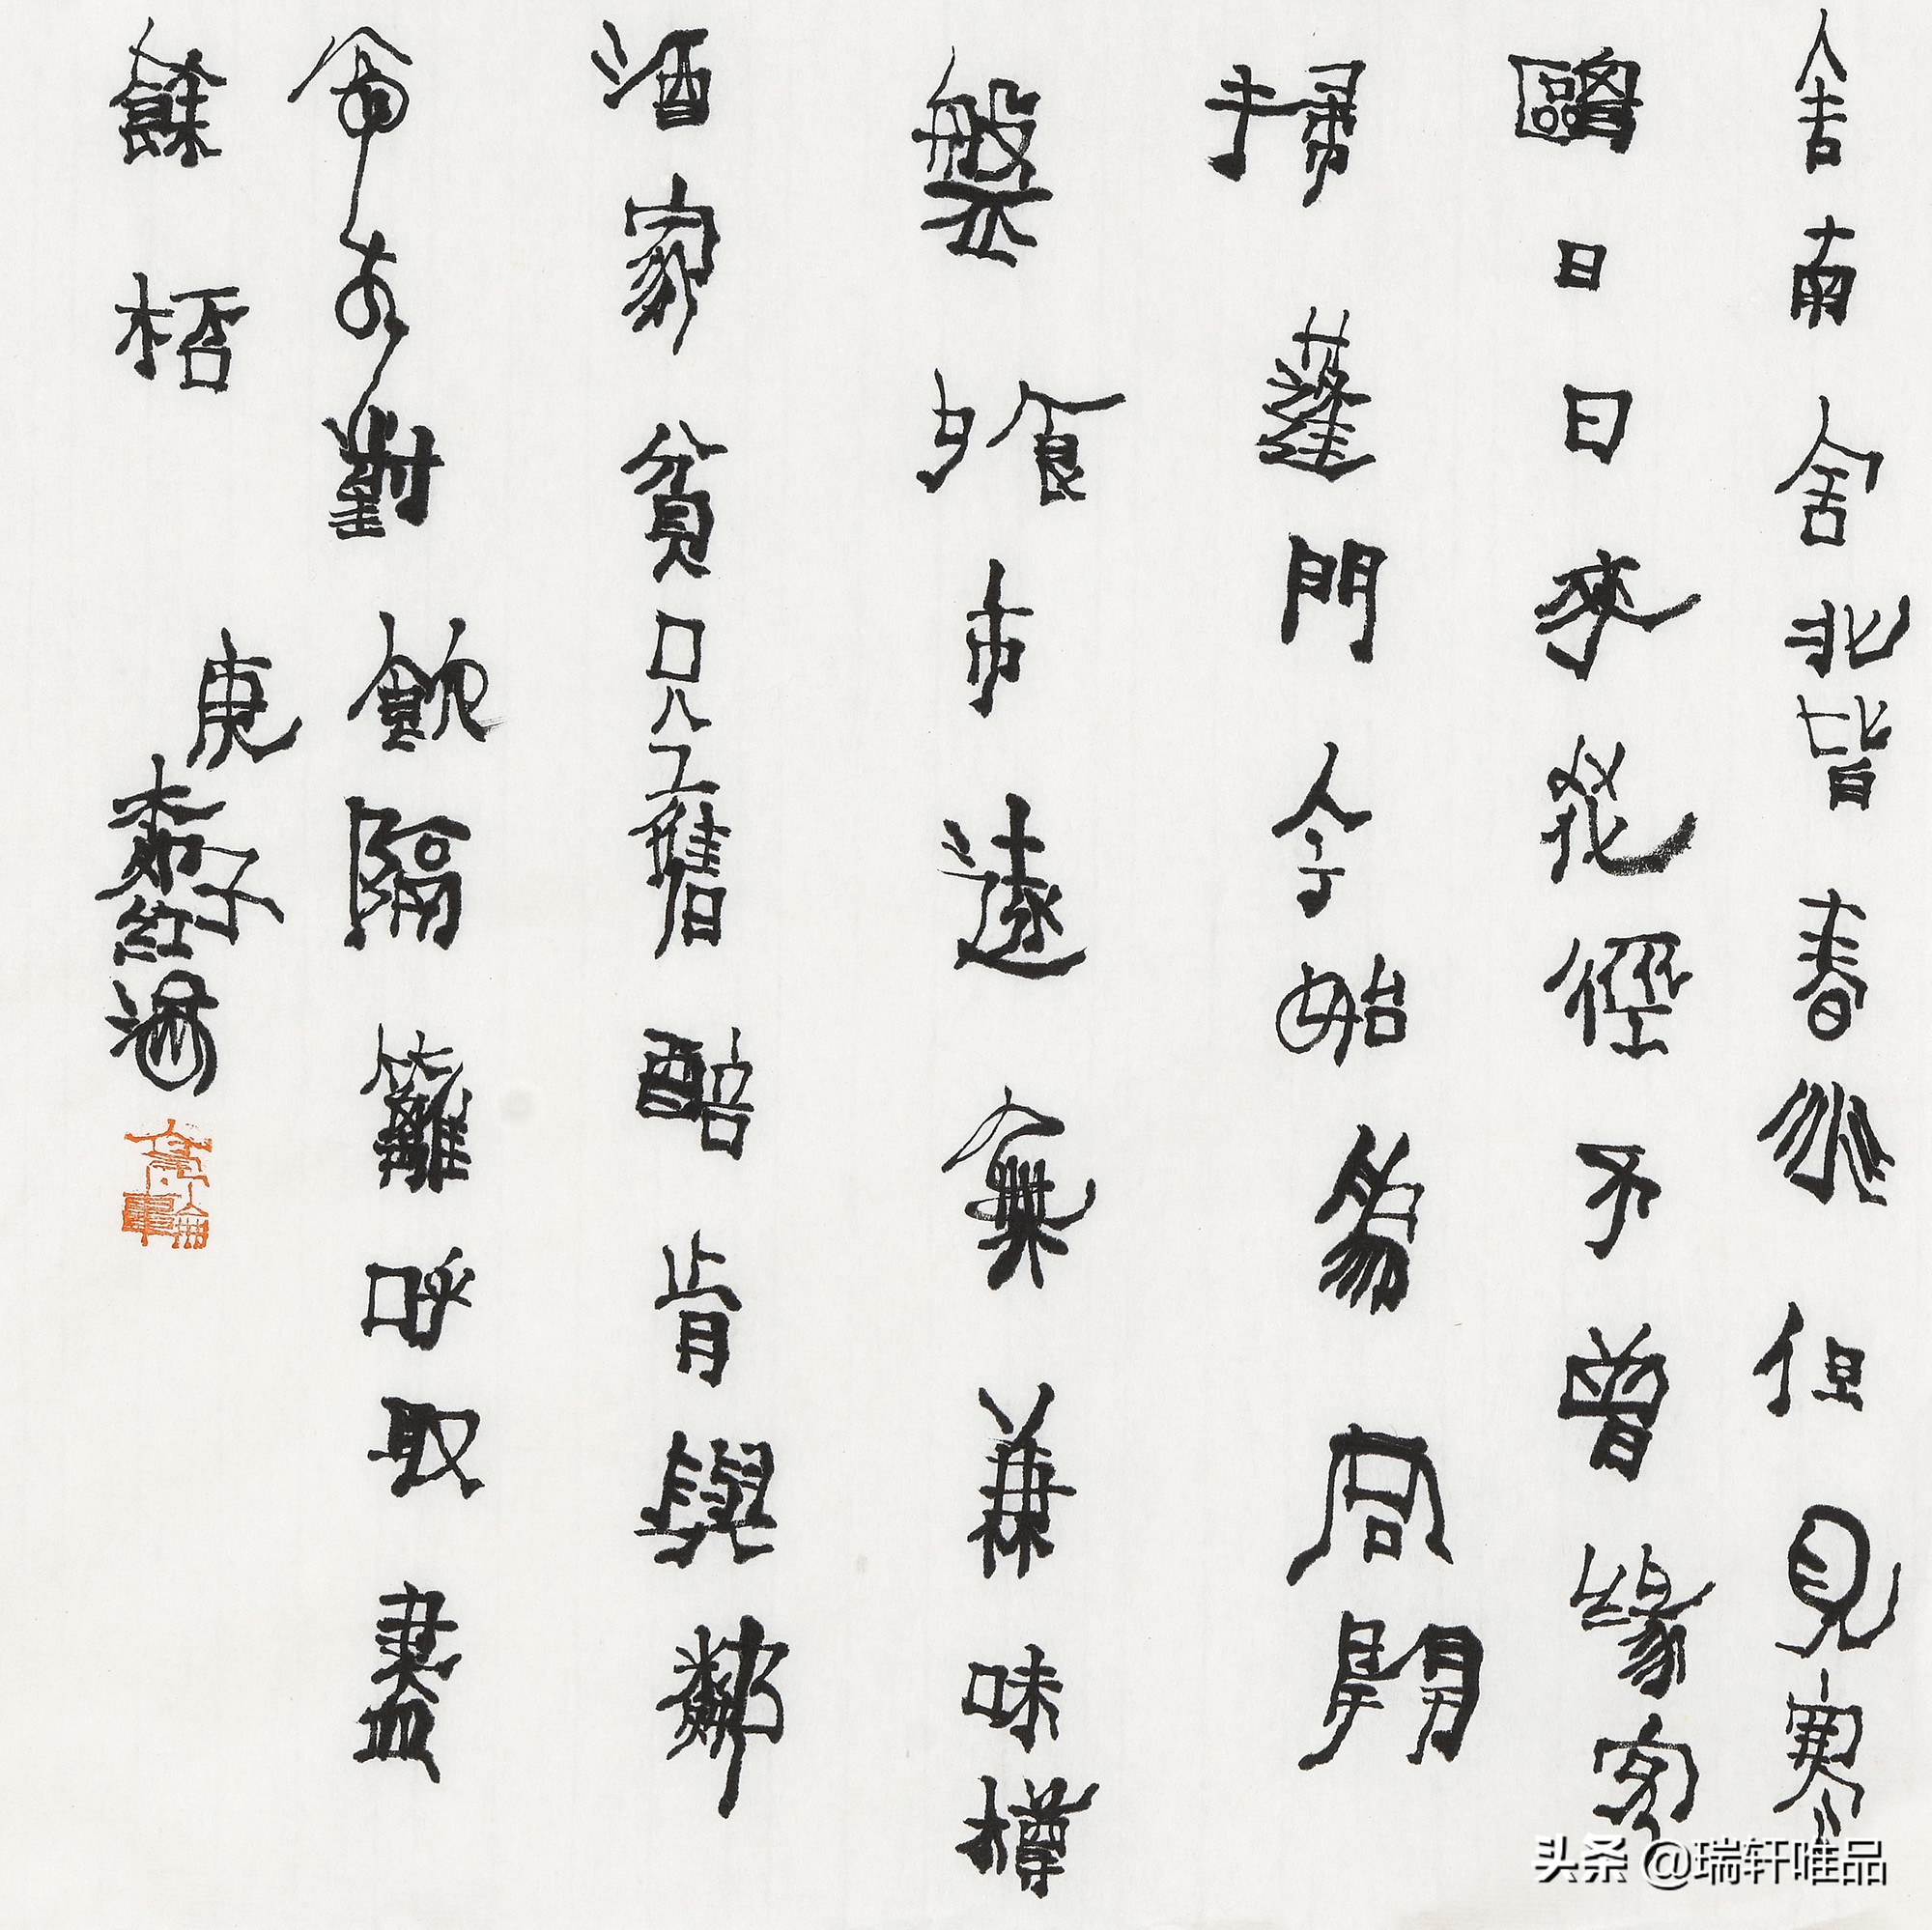 舍南舍北皆春水但見寒
鷗日日來花徑不曾緣客
掃蓬門今始為君開
盤飧市遠無兼味樽
酒家貧只舊醅肯與鄰
對飲隔籬呼取盡
餘桮
庚子
头条 @瑞轩唯品